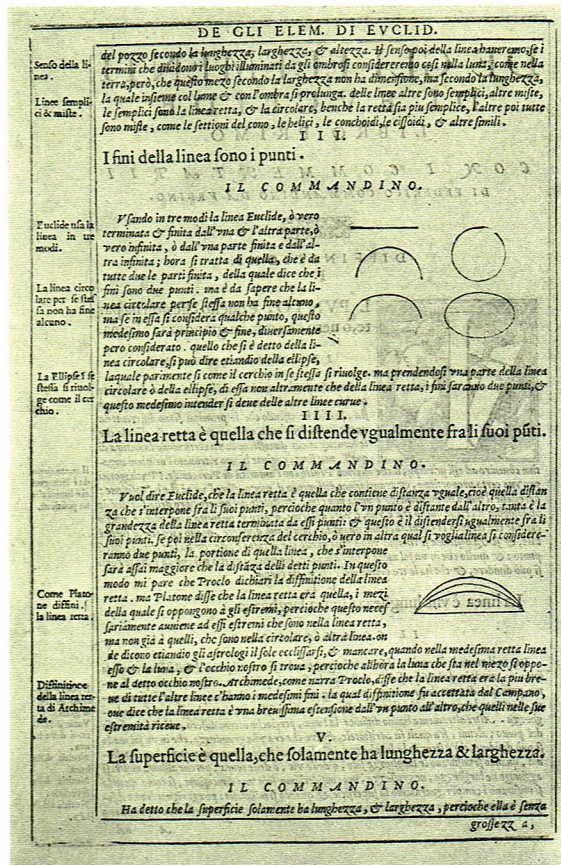 DE GLI ELEM. DI EVCLID.
Senso della li-
nea.
Linee sempli-
ci & miste.
del pozzo secondo la lunghezza, larghezza, & altezza. Il senso poi della linea haueremo, se i
termini che diuidono i luoghi illuminati da gli ombrosi considereremo cosi nella luna, come nella
terra, però, che questo mezo secondo la larghezza non ha dimensione, ma secondo la lunghezza,
la quale insieme col lume & con l'ombra si prolunga. delle linee altre sono semplici, altre miste,
le semplici sono la linea retta, & la circolare, benche la retta sia piu semplice, l'altre poi tutte
sono miste, come le settioni del cono, le helici, le conchoidi, le cissoidi, & altre simili.
III.
I fini della linea sono i punti.
IL COMMANDINO.
Euclide usa la
linea in tre
modi.
La linea circo
lare per se stes
sa non ha fine
alcuno.
La Ellipse ĩ se
stessa si riuol-
ge come il cer
chio.
Vsando in tre modi la linea Euclide, ò vero
terminata & finita dall'vna & l'altra parte, ò
vero infinita, ò dall'vna parte finita e dall'al-
tra infinita; hora si tratta di quella, che è da
tutte due le parti finita, della quale dice che i
fini sono due punti. ma è da sapere che la li-
nea circolare per se stessa non ha fine alcuno,
ma se in essa si considera qualche punto, questo
medesimo sarà principio & fine, diuersamente
pero considerato. quello che si è detto della li-
nea circolare, si può dire etiandio della ellipse,
laquale parimente si come il cerchio in se stessa si riuolge. ma prendendosi vna parte della linea
circolare ò della ellipse, di essa non altramente che della linea retta, i fini saranno due punti, &
questo medesimo intender si deue delle altre linee curue.
IIII.
La linea retta è quella che si distende vgualmente fra li suoi pũti.
IL COMMANDINO.
Come Plato-
ne diffinì
la linea retta.
Diffinitione
della linea ret-
ta di Archime
de.
Vuol dire Euclide, che la linea retta è quella che contiene distanza vguale, cioè quella distan
za che s'interpone fra li suoi punti, percioche quanto l'vn punto è distante dall'altro, tanta è la
grandezza della linea retta terminata da essi punti: & questo è il distendersi ugualmente fra li
suoi punti. se poi nella circonferenza del cerchio, ò uero in altra qual si voglia linea si considere-
ranno due punti, la portione di quella linea, che s'interpone
sarà assai maggiore che la distãza delli detti punti. In questo
modo mi pare che Proclo dichiari la diffinitione della linea
retta. ma Platone disse che la linea retta era quella, i mezi
della quale si oppongono à gli estremi, percioche questo neces
sariamente auuiene ad essi estremi che sono nella linea retta,
ma non già à quelli, che sono nella circolare, ò altra linea. on
de dicono etiandio gli astrologi il sole ecclissarsi, & mancare, quando nella medesima retta linea
esso & la luna, & l'occhio nostro si troua, percioche allhora la luna che sta nel mezo si oppo-
ne al detto occhio nostro. Archimede, come narra Proclo, disse che la linea retta era la piu bre-
ue di tutte l'altre linee c'hanno i medesimi fini. la qual diffinitione fu accettata dal Campano,
oue dice che la linea retta è vna breuissima estensione dall'vn punto all'altro, che quelli nelle sue
estremità riceue.
V.
La superficie è quella, che solamente ha lunghezza & larghezza.
IL COMMANDINO.
Ha detto che la superficie solamente ha lunghezza, & larghezza, percioche ella è senza
grossezza,